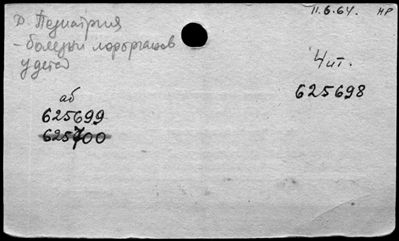 11.6.64. НР
Д. Педиатрия
- болезни лорорганов
у детей
Чит.
625698
аб
625699
625700